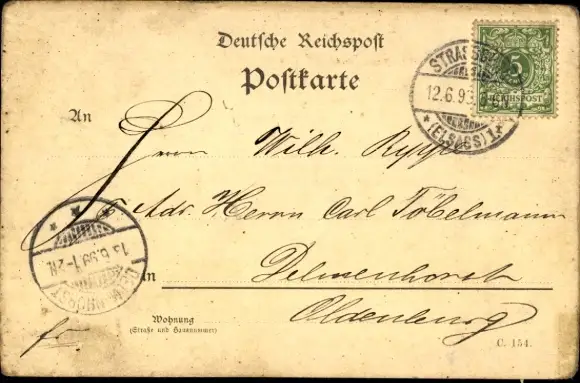 Deutsche Reichspost
Postkarte
5
REICHSPOST
STRASSBURG
12.6.99
* (ELSASS) 1 *
An
Herrn Wilh.
Adr. Herrn Carl Töbelmann
in Delmenhorst
Oldenburg
13.6.99 1-2N
DELMENHORST
Wohnung
(Straße und Hausnummer)
C. 154.